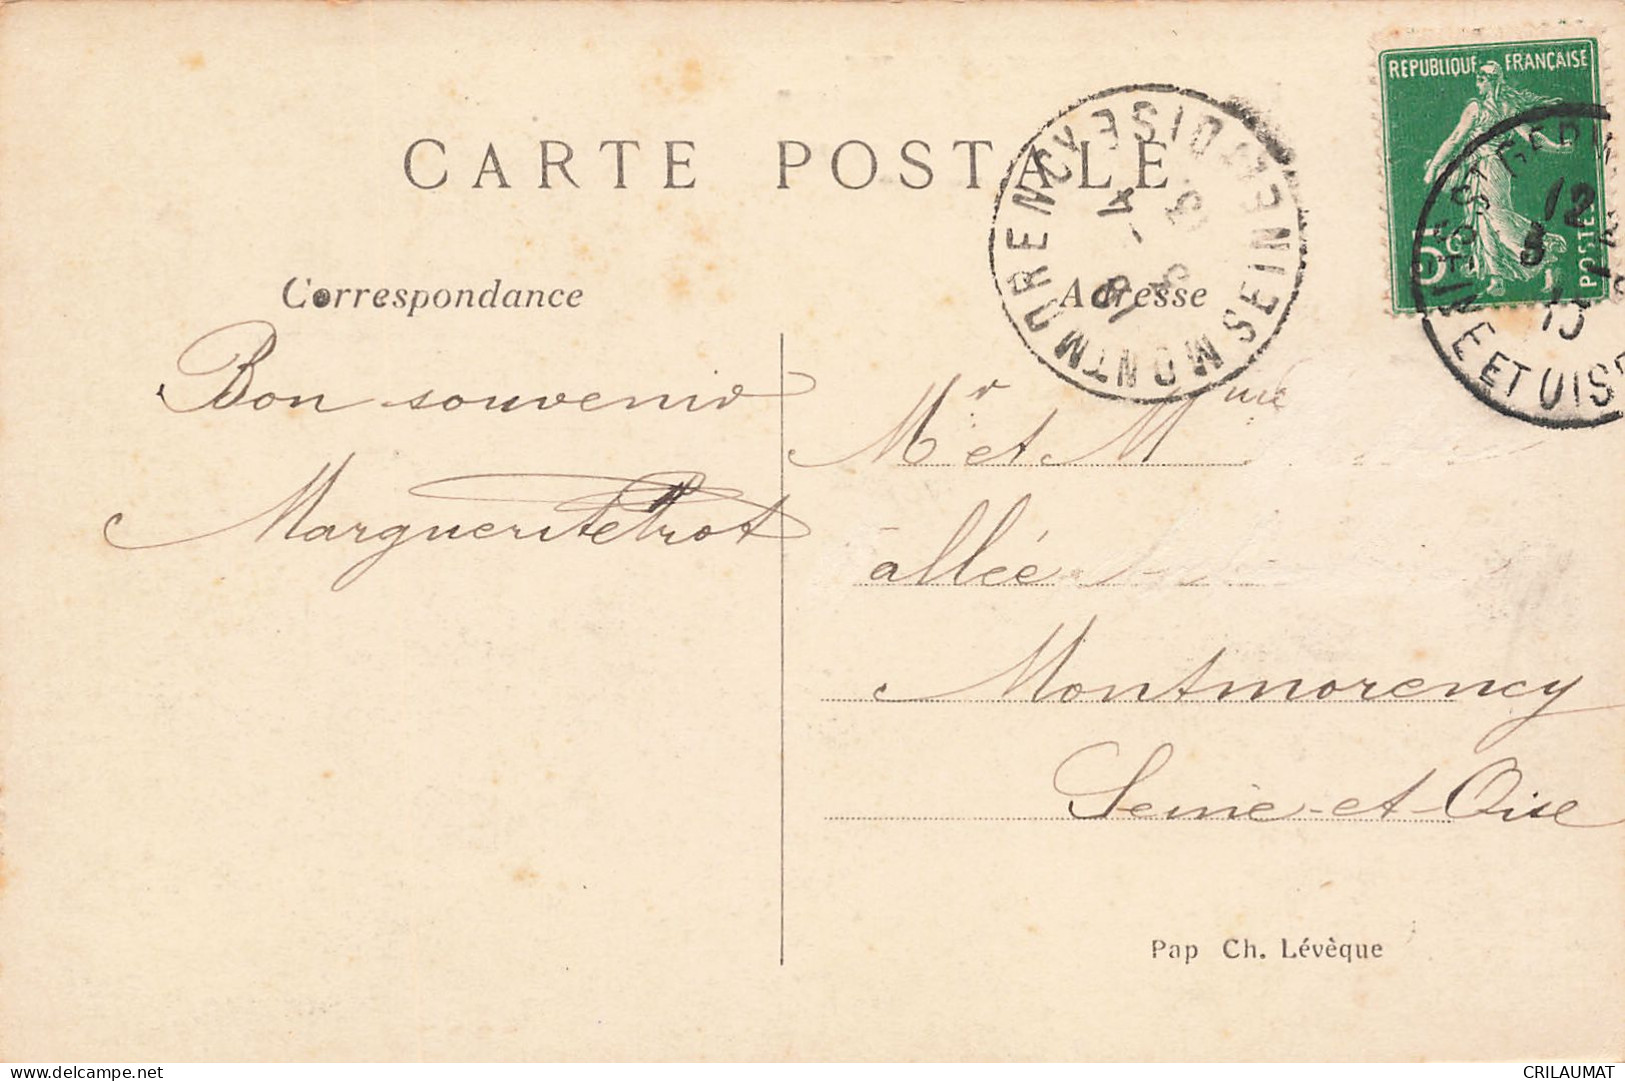 CARTE POSTALE
REPUBLIQUE FRANÇAISE
5c
POSTES
MONTMORENCY
SEINE ET OISE
12
ST GERM
INE ET OISE
Correspondance
Adresse
Bon souvenir
Marguerite
Mr et Mme
allée
Montmorency
Seine-et-Oise
Pap Ch. Lévèque
delcampe.net
CRILAUMAT